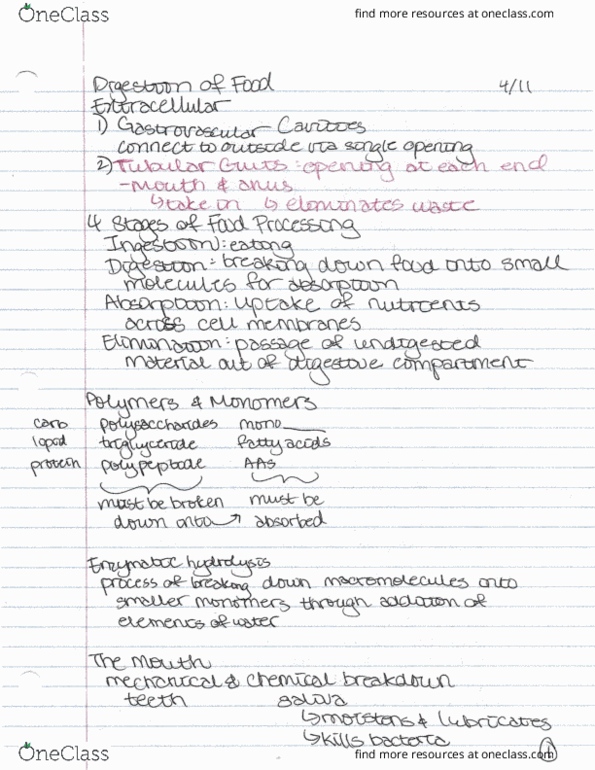 OneClass
find more resources at oneclass.com
Digestion of Food 4/11
Extracellular
1) Gastrovascular Cavities
connect to outside via single opening
2) Tubular Guts: opening at each end
-mouth & anus
↳take in ↳ eliminates waste
4 Stages of Food Processing
Ingestion: eating
Digestion: breaking down food into small
molecules for absorption
Absorption: uptake of nutrients
across cell membranes
Elimination: passage of undigested
material out of digestive compartment
Polymers & Monomers
carb polysaccharides mono____
lipid triglyceride fatty acids
protein polypeptide AAs
must be broken must be
down into → absorbed
Enzymatic hydrolysis
process of breaking down macromolecules into
smaller monomers through addition of
elements of water
The Mouth
mechanical & chemical breakdown
teeth saliva
↳moistens & lubricates
↳kills bacteria
OneClass
find more resources at oneclass.com
1